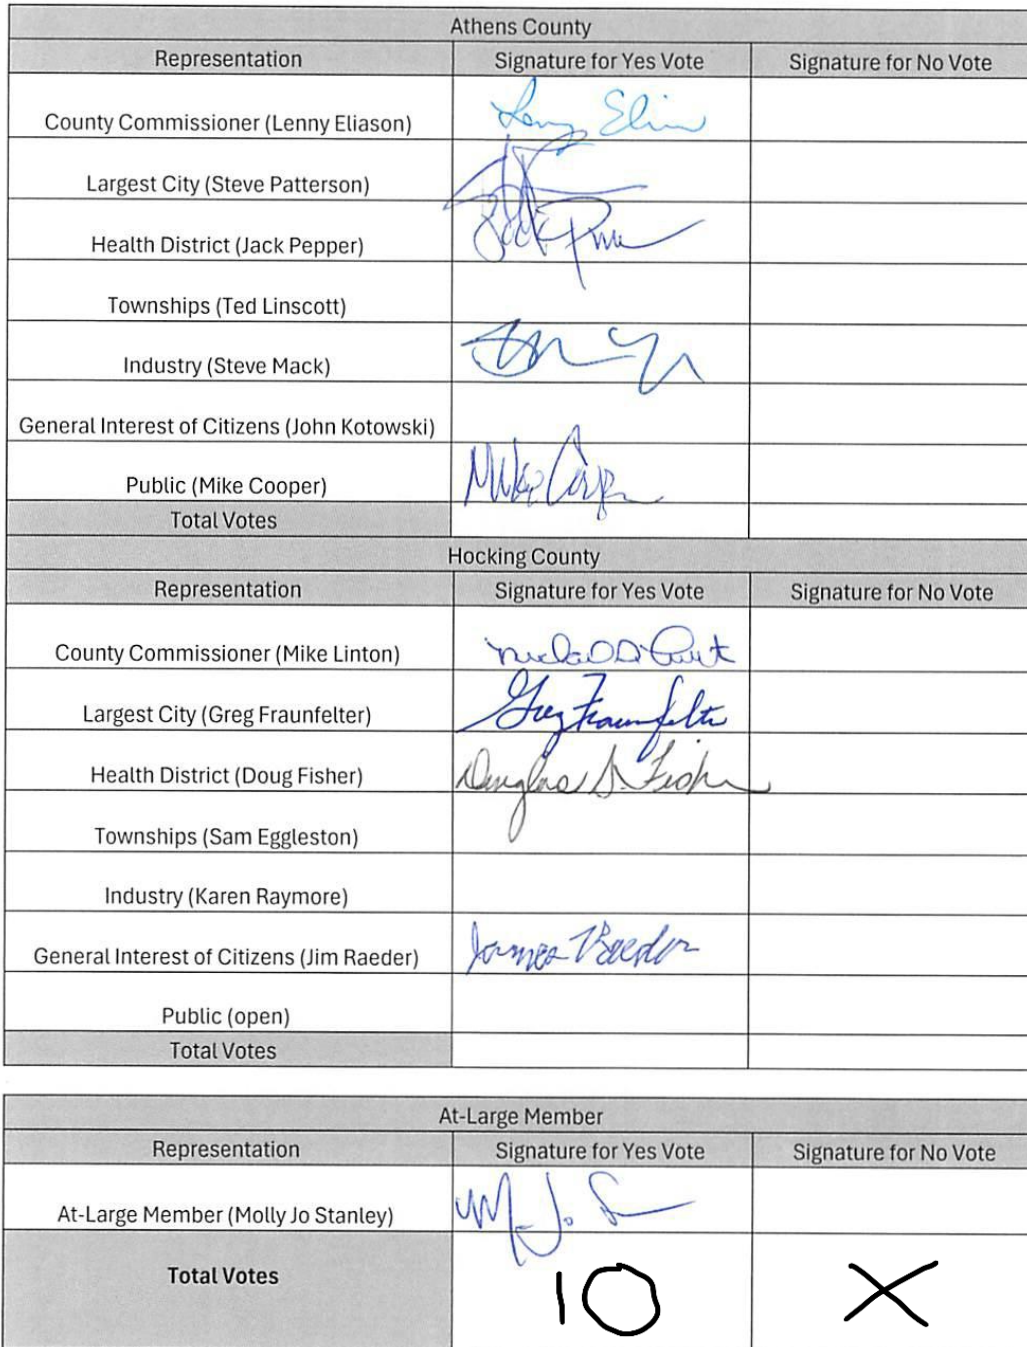 Athens County
Representation Signature for Yes Vote Signature for No Vote
County Commissioner (Lenny Eliason)
Largest City (Steve Patterson)
Health District (Jack Pepper) Jack
Townships (Ted Linscott)
Industry (Steve Mack)
General Interest of Citizens (John Kotowski)
Public (Mike Cooper) Mike
Total Votes
Hocking County
Representation Signature for Yes Vote Signature for No Vote
County Commissioner (Mike Linton)
Largest City (Greg Fraunfelter) Greg Fraunfelter
Health District (Doug Fisher) Douglas
Townships (Sam Eggleston)
Industry (Karen Raymore)
General Interest of Citizens (Jim Raeder) James Raeder
Public (open)
Total Votes
At-Large Member
Representation Signature for Yes Vote Signature for No Vote
At-Large Member (Molly Jo Stanley) M. Jo
Total Votes 10 X